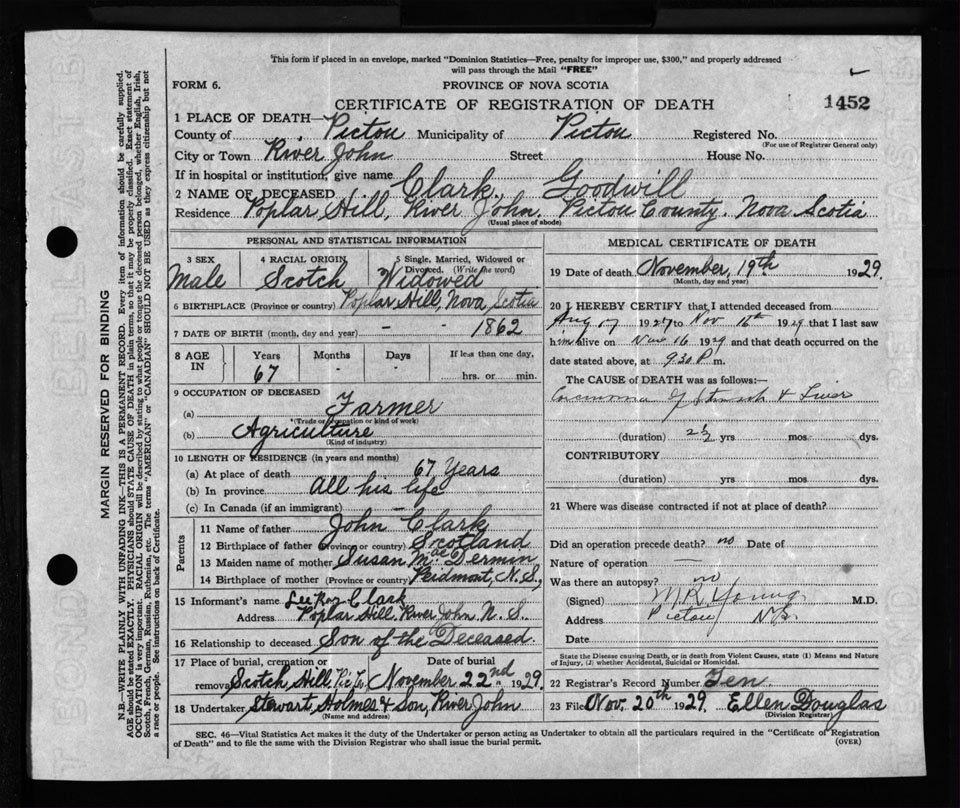 This form if placed in an envelope, marked "Dominion Statistics—Free, penalty for improper use, $300," and properly addressed
will pass through the Mail "FREE"
FORM 6.
PROVINCE OF NOVA SCOTIA
CERTIFICATE OF REGISTRATION OF DEATH
1452
1 PLACE OF DEATH—
County of Pictou Municipality of Pictou Registered No.
(For use of Registrar General only)
City or Town River John Street House No.
If in hospital or institution, give name
2 NAME OF DECEASED Clark, Goodwill
Residence Poplar Hill, River John. Pictou County. Nova Scotia
(Usual place of abode)
PERSONAL AND STATISTICAL INFORMATION
3 SEX 4 RACIAL ORIGIN 5 Single, Married, Widowed or
Divorced. (Write the word)
Male Scotch Widowed
6 BIRTHPLACE (Province or country) Poplar Hill, Nova Scotia
7 DATE OF BIRTH (month, day and year) - - 1862
8 AGE IN Years Months Days If less than one day,
67 - - hrs. or min.
9 OCCUPATION OF DECEASED
(a) Farmer
(Trade or occupation or kind of work)
(b) Agriculture
(Kind of industry)
10 LENGTH OF RESIDENCE (in years and months)
(a) At place of death 67 Years
(b) In province All his life
(c) In Canada (if an immigrant) -
Parents
11 Name of father John Clark
12 Birthplace of father (Province or country) Scotland
13 Maiden name of mother Susan Mac Dermin
14 Birthplace of mother (Province or country) Peidmont, N.S.,
15 Informant's name Lee Roy Clark
Address Poplar Hill, River John N.S.
16 Relationship to deceased Son of the Deceased.
17 Place of burial, cremation or Date of burial
removal Scotch Hill, Pic. Co. November 22nd 1929
18 Undertaker Stewart, Holmes & Son, River John
(Name and address)
MEDICAL CERTIFICATE OF DEATH
19 Date of death November, 19th 1929
(Month, day and year)
20 I HEREBY CERTIFY that I attended deceased from
Aug 17 1927 to Nov 16th 1929 that I last saw
him alive on Nov 16 1929 and that death occurred on the
date stated above, at 9.30 P. m.
The CAUSE OF DEATH was as follows:—
Carcinoma of stomach & Liver
(duration) 2½ yrs mos dys.
CONTRIBUTORY
(duration) yrs. mos. dys.
21 Where was disease contracted if not at place of death?
Did an operation precede death? no Date of
Nature of operation —
Was there an autopsy? no
(Signed) M R Young M.D.
Address Pictou N.S.
Date
State the Disease causing Death, or in death from Violent Causes, state (1) Means and Nature
of Injury, (2) whether Accidental, Suicidal or Homicidal.
22 Registrar's Record Number Ten
23 Filed Nov. 20th 1929. Ellen Douglas
(Division Registrar)
SEC. 46—Vital Statistics Act makes it the duty of the Undertaker or person acting as Undertaker to obtain all the particulars required in the "Certificate of Registration
of Death" and to file the same with the Division Registrar who shall issue the burial permit. (OVER)
MARGIN RESERVED FOR BINDING
N.B.—WRITE PLAINLY WITH UNFADING INK—THIS IS A PERMANENT RECORD. Every item of information should be carefully supplied.
AGE should be stated EXACTLY. PHYSICIANS should STATE CAUSE OF DEATH in plain terms, so that it may be properly classified. Exact statement of
OCCUPATION is very important. RACIAL ORIGIN will be described by stating to what people or tongue the deceased person belonged, whether English, Irish,
Scotch, French, German, Russian, Ruthenian, etc. The terms "AMERICAN" or "CANADIAN" SHOULD NOT BE USED as they express citizenship but not
a race or people. See instructions on back of Certificate.